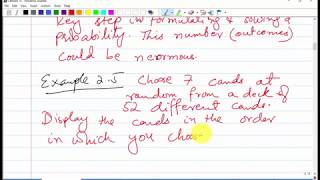 key step in formulating & solving a
probability. This number (outcomes)
could be neormous.
Example 2.5 Choose 7 cards at
random from a deck of
52 different cards.
Display the cards in the order
in which you choo